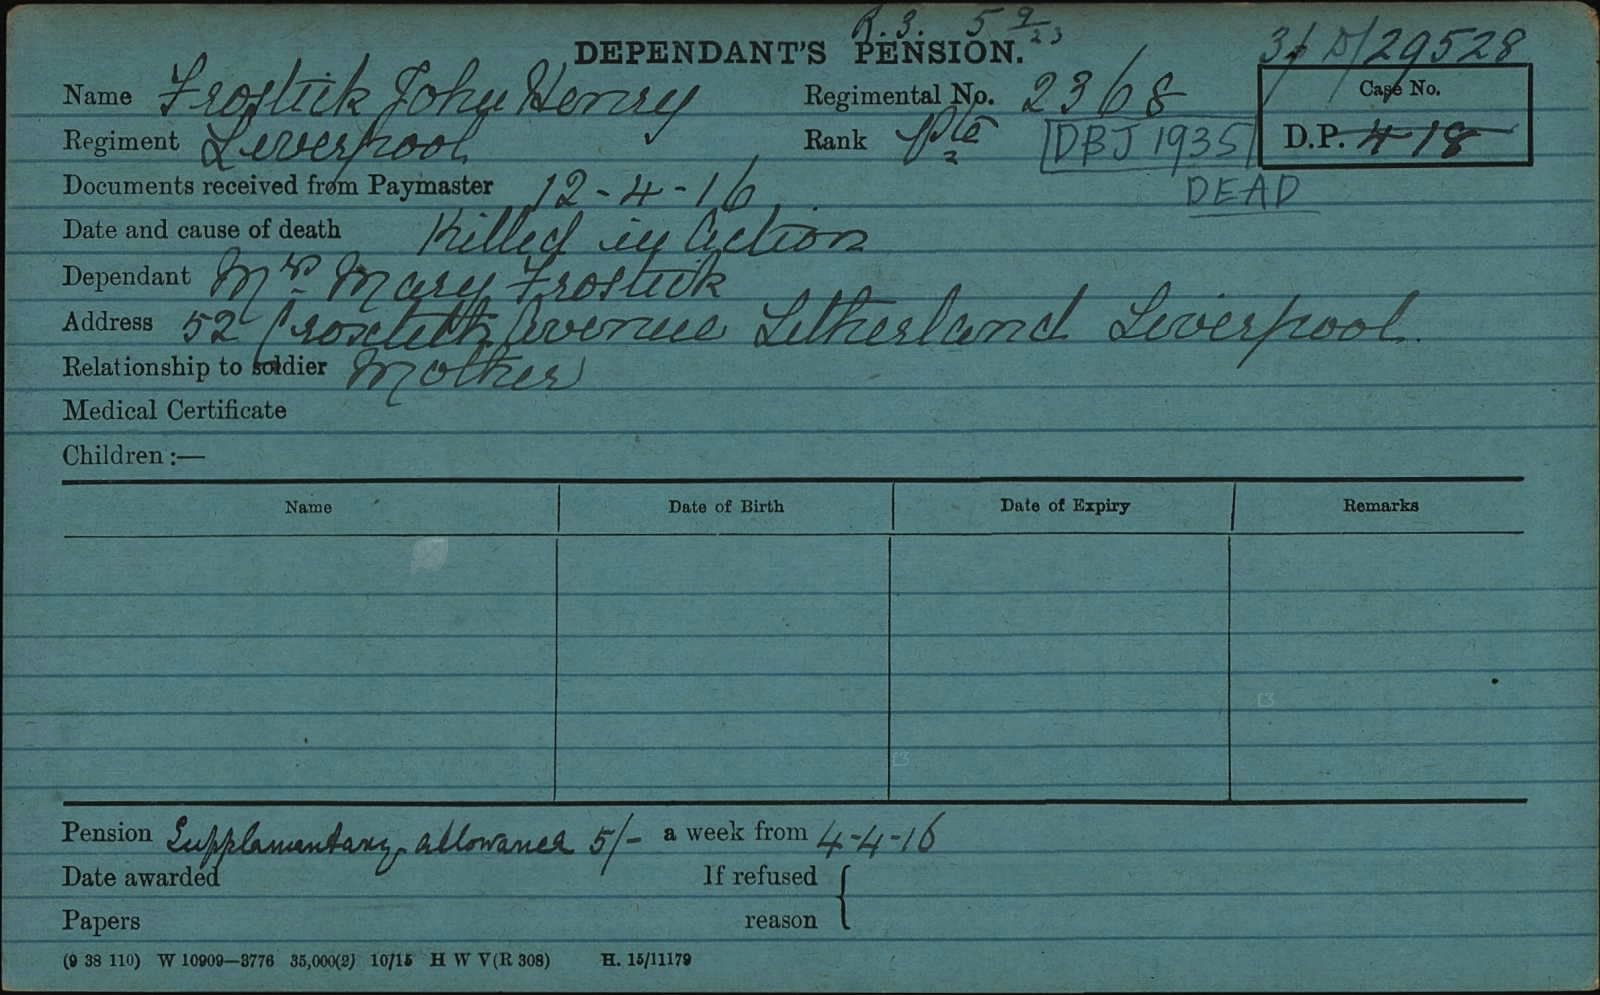 R. 3. 5 9/23
DEPENDANT'S PENSION.
3/ D/29528
Name Frostick John Henry Regimental No. 2368 Case No.
Regiment Liverpool Rank Pte DBJ 1935 D.P. 418
Documents received from Paymaster 12-4-16 DEAD
Date and cause of death Killed in Action
Dependant Mrs Mary Frostick
Address 52 Croxteth Avenue Litherland Liverpool.
Relationship to soldier Mother
Medical Certificate
Children :—
Name Date of Birth Date of Expiry Remarks
Pension Supplementary allowance 5/- a week from 4-4-16
Date awarded If refused
Papers reason
(9 38 110) W 10909—3776 35,000(2) 10/15 H W V(R 308) H. 15/11179